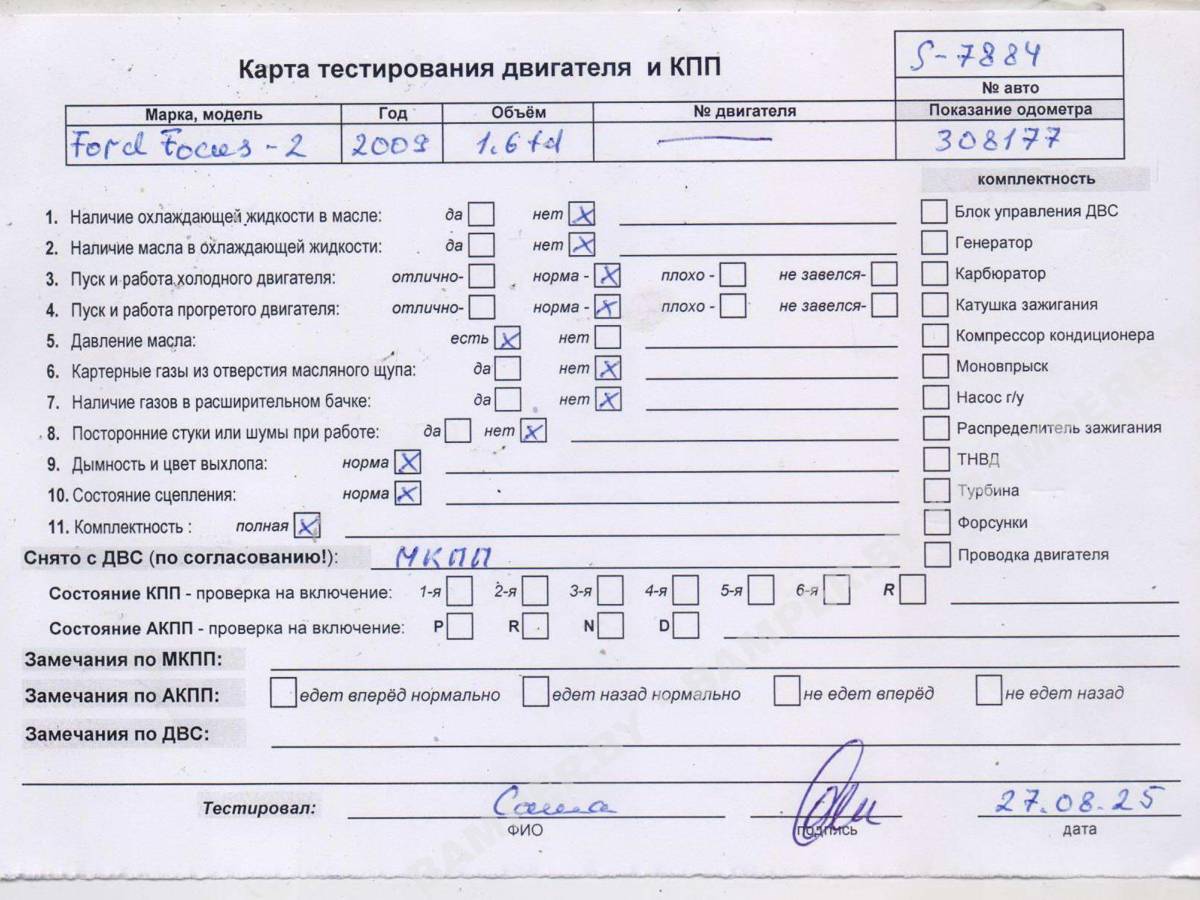 S-7884
Карта тестирования двигателя и КПП
№ авто
Марка, модель Год Объём № двигателя Показание одометра
Ford Focus - 2 2009 1.6 td 308177
комплектность
1. Наличие охлаждающей жидкости в масле: да нет X
Блок управления ДВС
2. Наличие масла в охлаждающей жидкости: да нет X
Генератор
3. Пуск и работа холодного двигателя: отлично- норма - X плохо - не завелся-
Карбюратор
4. Пуск и работа прогретого двигателя: отлично- норма - X плохо - не завелся-
Катушка зажигания
5. Давление масла: есть X нет
Компрессор кондиционера
6. Картерные газы из отверстия масляного щупа: да нет X
Моновпрыск
7. Наличие газов в расширительном бачке: да нет X
Насос г/у
8. Посторонние стуки или шумы при работе: да нет X
Распределитель зажигания
9. Дымность и цвет выхлопа: норма X
ТНВД
10. Состояние сцепления: норма X
Турбина
11. Комплектность : полная X
Форсунки
Снято с ДВС (по согласованию!): МКПП
Проводка двигателя
Состояние КПП - проверка на включение: 1-я 2-я 3-я 4-я 5-я 6-я R
Состояние АКПП - проверка на включение: P R N D
Замечания по МКПП:
Замечания по АКПП: едет вперёд нормально едет назад нормально не едет вперёд не едет назад
Замечания по ДВС:
Тестировал: Саша 27.08.25
ФИО подпись дата
BAMPER.BY